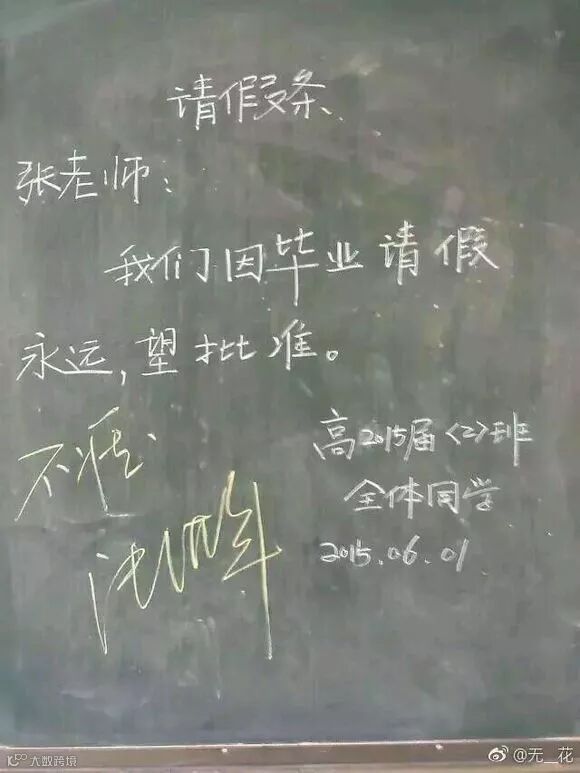 请假条
张老师:
我们因毕业请假
永远,望批准。
不准
高2015届<2>班
全体同学
2015.06.01
大数跨境
@无_花